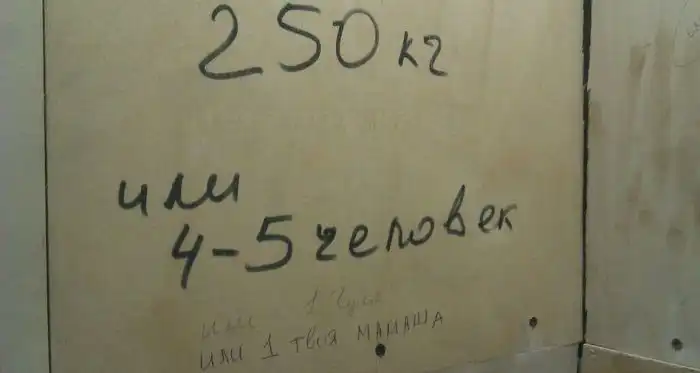 250 кг
или
4-5 человек
или 1
или 1 твоя МАМАША